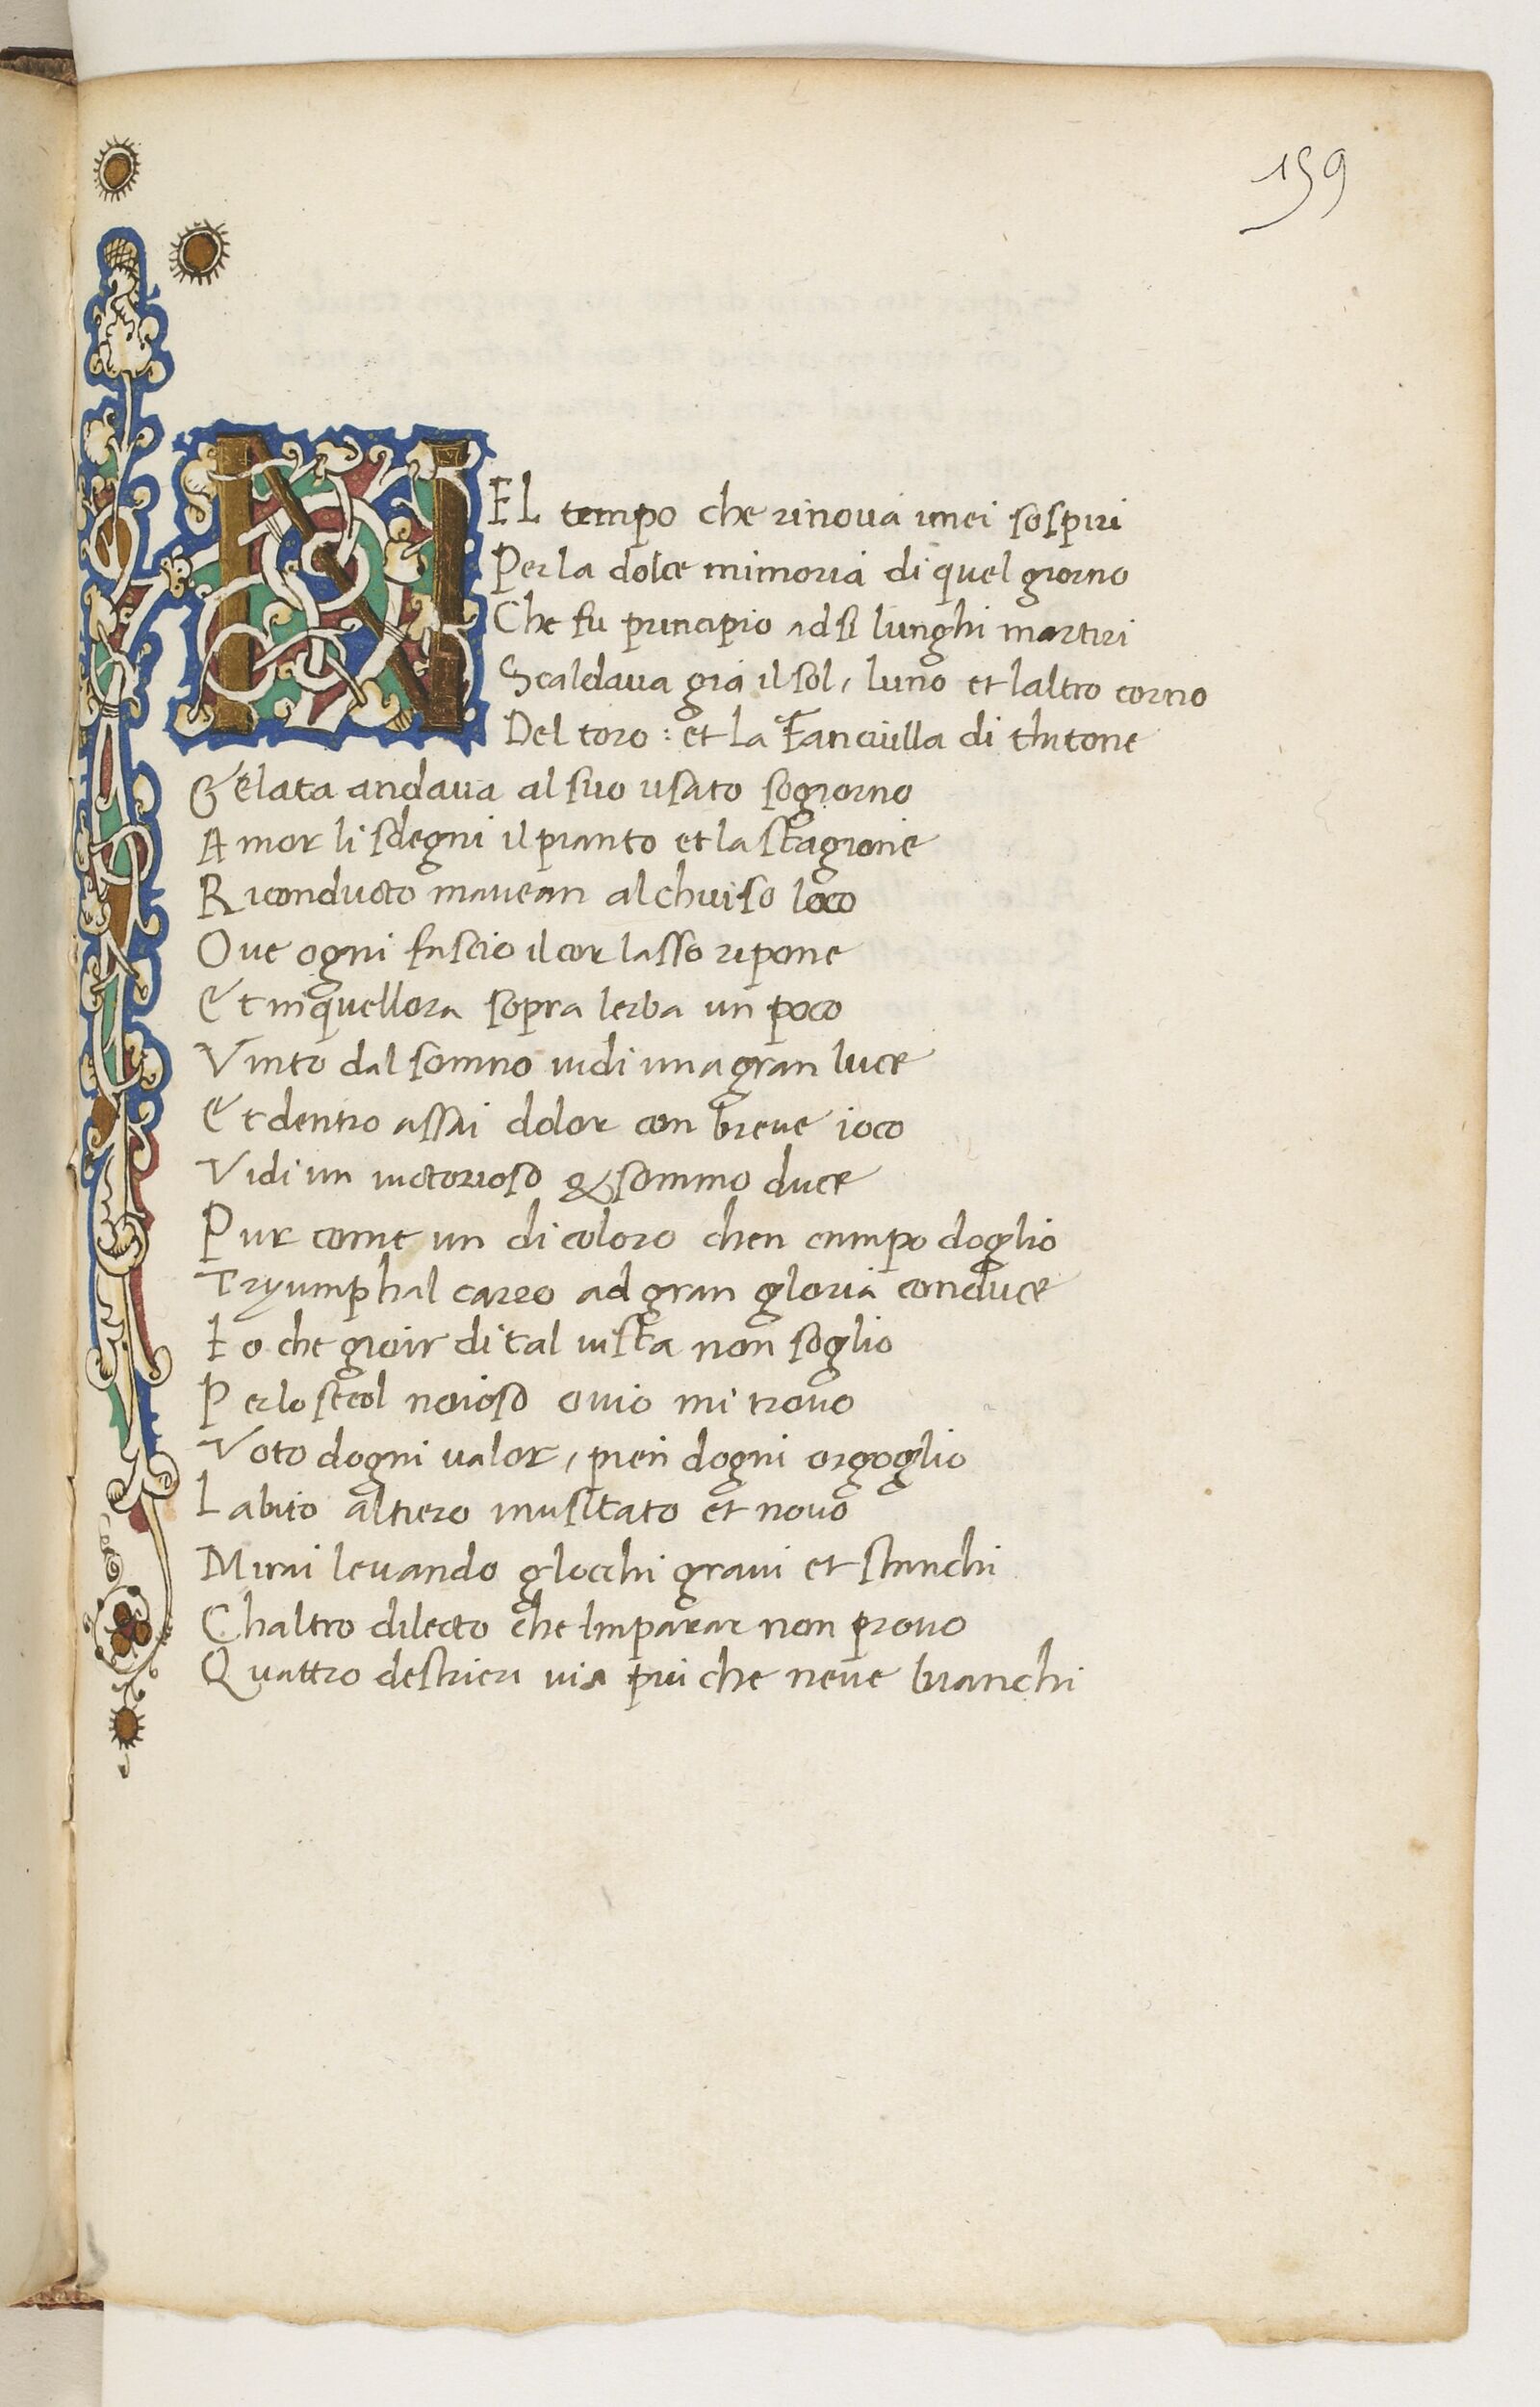 159
NEL tempo che rinova imei sospiri
Per la dolce mimoria di quel giorno
Che fu principio ad si lunghi martiri
Scaldava gia il sol, luno et laltro corno
Del toro : et la Fanciulla di thitone
Gelata andava al suo usato sogiorno
Amor li sdegni il pianto et la stagione
Riconducto mavean al chuiso loco
Ove ogni fascio il cor lasso ripone
Et in quellora sopra lerba un poco
Vinto dal somno vidi una gran luce
Et dentro assai dolor con breve ioco
Vidi un victorioso & sommo duce
Pur come un di coloro chen campo doglio
Tryumphal carro ad gran gloria conduce
Io che gioir di tal vista non soglio
Per lo secol noioso ovio mi trovo
Voto dogni valor, pien dogni orgoglio
Labito altiero inusitato et novo
Mirai levando glocchi gravi et stanchi
Chaltro dilecto che Imparar non provo
Quattro destrieri via piu che neve bianchi